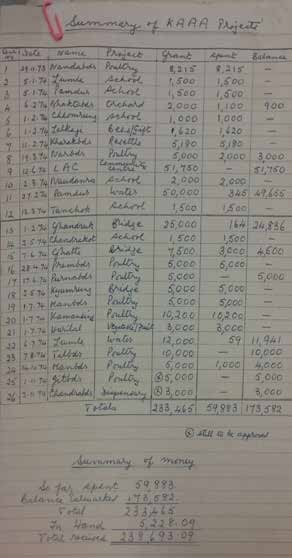 Summary of KAAA Projects
Date Name Project Grant Spent Balance
1 29.11.73 Nandabós Poultry 8,215 8,215 —
2 5.1.74 Lumle School 1,500 1,500 —
3 5.1.74 Pamdur School 1,500 1,500 —
4 6.2.74 Bhaktabós Orchard 2,000 1,100 900
5 1.2.74 Chhomrung School 1,000 1,000 —
6 1.2.74 1,620 1,620 —
7 11.2.74 Kharakbós 5,180 5,180 —
8 19.3.74 Narbós Poultry 5,000 2,000 3,000
9 12.6.74 LAC Community centre 51,750 — 51,750
10 2.3.74 Naudanra School 2,000 2,000 —
11 27.2.74 Pamdur Water 50,000 345 49,655
12 12.3.74 Tanchok School 1,500 1,500 —
13 1.2.74 Ghandruk Bridge 25,000 164 24,836
14 2.5.74 Chandrakot School 1,500 1,500 —
15 7.6.74 Bridge 7,500 3,000 4,500
16 28.4.74 Prembós Poultry 5,000 5,000 —
17 17.6.74 Purnabós Poultry 5,000 — 5,000
18 2.5.74 Kyumrung Bridge 5,000 5,000 —
19 1.7.74 Manbós Poultry 5,000 5,000 —
20 1.7.74 Poultry 10,200 10,200 —
21 1.7.74 3,000 3,000 —
22 6.7.74 Lumle Water 12,000 59 11,941
23 7.8.74 Talbós Poultry 10,000 — 10,000
24 Manbós Poultry 5,000 1,000 4,000
25 1.11.74 Jitbós Poultry 5,000 — 5,000
26 3.11.74 Chandrakot Dispensary 3,000 — 3,000
Totals 233,465 59,883 173,582
still to be approved
Summary of money
So far spent 59,883
Balance earmarked 173,582
Total 233,465
In hand 5,228.09
Total received 238,693.09